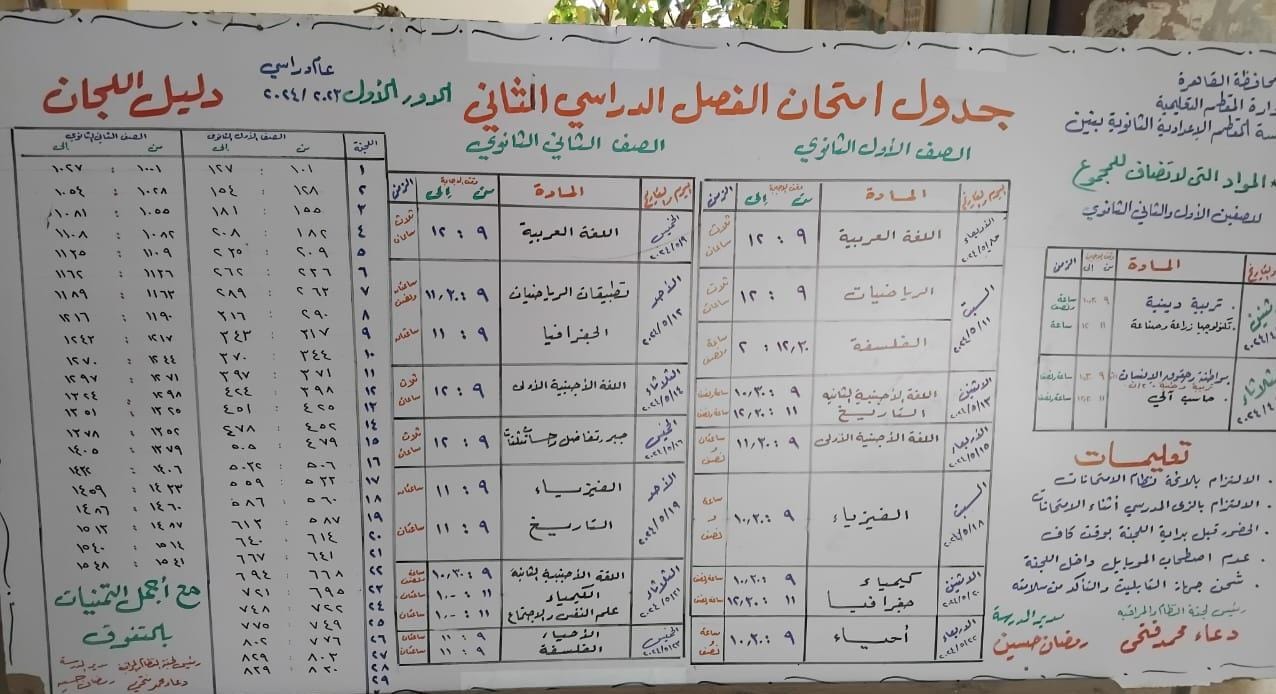 محافظة القاهرة
إدارة المقطم التعليمية
المقطم الإعدادية الثانوية بنين
المواد التى لا تضاف للمجموع
للصفين الأول والثانى الثانوي
المادة
وقت الإجابة
من إلى
الزمن
تربية دينية
٩ ١٠,٣٠
ساعة ونصف
تكنولوجيا زراعة وصناعة
١١ ١٢
ساعة
مواطنة وحقوق الإنسان
٩ ١٠,٣٠
ساعة ونصف
حاسب آلي
١١
ساعة ونصف
تعليمات
الالتزام بلائحة نظام الامتحانات
الالتزام بالزى المدرسي أثناء الامتحانات
الحضور قبل بداية اللجنة بوقت كاف
عدم اصطحاب الموبايل داخل اللجنة
شحن جهاز التابليت والتأكد من سلامته
رئيس لجنة النظام والمراقبة
دعاء محمد فتحى
مدير المدرسة
رمضان حسين
جدول امتحان الفصل الدراسي الثاني
الدور الأول
عام دراسي
٢٠٢٣/٢٠٢٤
الصف الأول الثانوي
اليوم والتاريخ
المادة
وقت الإجابة
من إلى
الزمن
الأربعاء ٢٠٢٤/٥/٨
اللغة العربية
٩ : ١٢
ثلاث ساعات
السبت ٢٠٢٤/٥/١١
الرياضيات
٩ : ١٢
ثلاث ساعات
الفلسفة
١٢,٣٠ : ٢
ساعة ونصف
الاثنين ٢٠٢٤/٥/١٣
اللغة الأجنبية الثانية
٩ : ١٠,٣٠
ساعة ونصف
التاريخ
١١ : ١٢,٣٠
ساعة ونصف
الأربعاء ٢٠٢٤/٥/١٥
اللغة الأجنبية الأولى
٩ : ١١,٣٠
ساعتان ونصف
السبت ٢٠٢٤/٥/١٨
الفيزياء
٩ : ١٠,٣٠
ساعة ونصف
الاثنين ٢٠٢٤/٥/٢٠
كيمياء
٩ : ١٠,٣٠
ساعة ونصف
جغرافيا
١١ : ١٢,٣٠
ساعة ونصف
الأربعاء ٢٠٢٤/٥/٢٢
أحياء
٩ : ١٠,٣٠
ساعة ونصف
الصف الثاني الثانوي
اليوم والتاريخ
المادة
وقت الإجابة
من إلى
الزمن
الخميس ٢٠٢٤/٥/٩
اللغة العربية
٩ : ١٢
ثلاث ساعات
الأحد ٢٠٢٤/٥/١٢
تطبيقات الرياضيات
٩ : ١١,٣٠
ساعتان ونصف
الجغرافيا
٩ : ١١
ساعتان
الثلاثاء ٢٠٢٤/٥/١٤
اللغة الأجنبية الأولى
٩ : ١٢
ثلاث ساعات
الخميس ٢٠٢٤/٥/١٦
جبر وتفاضل وحساب مثلثات
٩ : ١٢
ثلاث ساعات
الأحد ٢٠٢٤/٥/١٩
الفيزياء
٩ : ١١
ساعتان
التاريخ
٩ : ١١
ساعتان
الثلاثاء ٢٠٢٤/٥/٢١
اللغة الأجنبية الثانية
٩ : ١٠,٣٠
ساعة ونصف
الكيمياء
ساعتان
علم النفس والاجتماع
ساعتان
الخميس ٢٠٢٤/٥/٢٣
الأحياء
٩ : ١١
ساعتان
الفلسفة
٩ : ١١
ساعتان
دليل اللجان
اللجنة
الصف الأول الثانوي
من إلى
الصف الثاني الثانوي
من إلى
١ ١٠١ : ١٢٧ ١٠٠١ : ١٠٢٧
٢ ١٢٨ : ١٥٤ ١٠٢٨ : ١٠٥٤
٣ ١٥٥ : ١٨١ ١٠٥٥ : ١٠٨١
٤ ١٨٢ : ٢٠٨ ١٠٨٢ : ١١٠٨
٥ ٢٠٩ : ٢٣٥ ١١٠٩ : ١١٣٥
٦ ٢٣٦ : ٢٦٢ ١١٣٦ : ١١٦٢
٧ ٢٦٣ : ٢٨٩ ١١٦٣ : ١١٨٩
٨ ٢٩٠ : ٣١٦ ١١٩٠ : ١٢١٦
٩ ٣١٧ : ٣٤٣ ١٢١٧ : ١٢٤٣
١٠ ٣٤٤ : ٣٧٠ ١٢٤٤ : ١٢٧٠
١١ ٣٧١ : ٣٩٧ ١٢٧١ : ١٢٩٧
١٢ ٣٩٨ : ٤٢٤ ١٢٩٨ : ١٣٢٤
١٣ ٤٢٥ : ٤٥١ ١٣٢٥ : ١٣٥١
١٤ ٤٥٢ : ٤٧٨ ١٣٥٢ : ١٣٧٨
١٥ ٤٧٩ : ٥٠٥ ١٣٧٩ : ١٤٠٥
١٦ ٥٠٦ : ٥٣٢ ١٤٠٦ : ١٤٣٢
١٧ ٥٣٣ : ٥٥٩ ١٤٣٣ : ١٤٥٩
١٨ ٥٦٠ : ٥٨٦ ١٤٦٠ : ١٤٨٦
١٩ ٥٨٧ : ٦١٣ ١٤٨٧ : ١٥١٣
٢٠ ٦١٤ : ٦٤٠ ١٥١٤ : ١٥٤٠
٢١ ٦٤١ : ٦٦٧ ١٥٤١ : ١٥٤٨
٢٢ ٦٦٨ : ٦٩٤
٢٣ ٦٩٥ : ٧٢١
٢٤ ٧٢٢ : ٧٤٨
٢٥ ٧٤٩ : ٧٧٥
٢٦ ٧٧٦ : ٨٠٢
٢٧ ٨٠٣ : ٨٢٩
٢٨ ٨٣٠ : ٨٣٩
٢٩
مع أجمل التمنيات
بالتفوق
رئيس لجنة النظام والمراقبة
دعاء محمد فتحى
مدير المدرسة
رمضان حسين